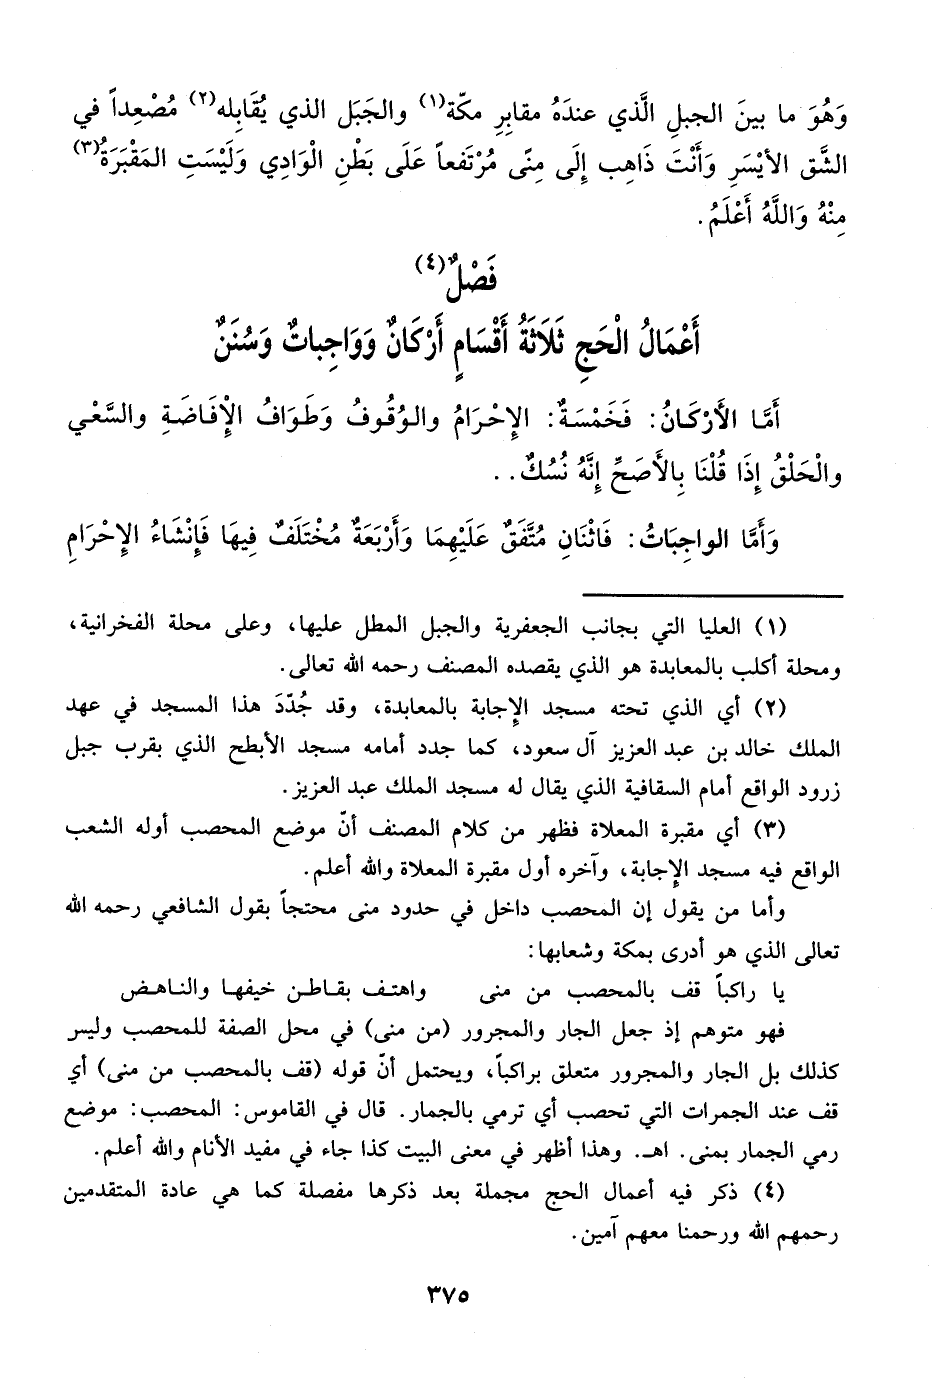 وَهُوَ ما بينَ الجبلِ الَّذي عندَهُ مقابِرِ مكّة(١) والجَبَل الذي يُقَابِله(٢) مُصْعِداً في
الشَّق الأيْسَرِ وَأَنْتَ ذَاهِب إِلَى مِنًى مُرْتَفعاً عَلَى بَطْنِ الْوَادِي وَلَيْسَتِ المَقْبَرَةُ(٣)
مِنْهُ وَاللَّهُ أَعْلَمُ.
فَصْلٌ(٤)
أَعْمَالُ الْحَجِ ثَلَاثَةُ أَقْسَامٍ أَرْكَانٌ وَوَاجِباتٌ وَسُنَنٌ
أَمَّا الأَرْكَانُ: فَخَمْسَةٌ: الإِحْرَامُ والوُقُوفُ وَطَوَافُ الْإِفَاضَةِ والسَّعْي
والْحَلْقُ إِذَا قُلْنَا بِالأَصَحِّ إِنَّهُ نُسُكٌ..
وَأَمَّا الواجِبَاتُ: فَاثْنَانِ مُتَّفَقٌ عَلَيْهِمَا وَأَرْبَعَةٌ مُخْتَلَفٌ فِيهَا فَإِنْشَاءُ الإِحْرَامِ
(١) العليا التي بجانب الجعفرية والجبل المطل عليها، وعلى محلة الفخرانية،
ومحلة أكلب بالمعابدة هو الذي يقصده المصنف رحمه الله تعالى.
(٢) أي الذي تحته مسجد الإجابة بالمعابدة، وقد جُدّدَ هذا المسجد في عهد
الملك خالد بن عبد العزيز آل سعود، كما جدد أمامه مسجد الأبطح الذي بقرب جبل
زرود الواقع أمام السقافية الذي يقال له مسجد الملك عبد العزيز.
(٣) أي مقبرة المعلاة فظهر من كلام المصنف أنّ موضع المحصب أوله الشعب
الواقع فيه مسجد الإجابة، وآخره أول مقبرة المعلاة والله أعلم.
وأما من يقول إن المحصب داخل في حدود منى محتجاً بقول الشافعي رحمه الله
تعالى الذي هو أدرى بمكة وشعابها:
يا راكباً قف بالمحصب من منى واهتف بقاطن خيفها والناهض
فهو متوهم إذ جعل الجار والمجرور (من منى) في محل الصفة للمحصب وليس
كذلك بل الجار والمجرور متعلق براكباً، ويحتمل أنّ قوله (قف بالمحصب من منى) أي
قف عند الجمرات التي تحصب أي ترمي بالجمار. قال في القاموس: المحصب: موضع
رمي الجمار بمنى. اهـ. وهذا أظهر في معنى البيت كذا جاء في مفيد الأنام والله أعلم.
(٤) ذكر فيه أعمال الحج مجملة بعد ذكرها مفصلة كما هي عادة المتقدمين
رحمهم الله ورحمنا معهم آمين.
٣٧٥